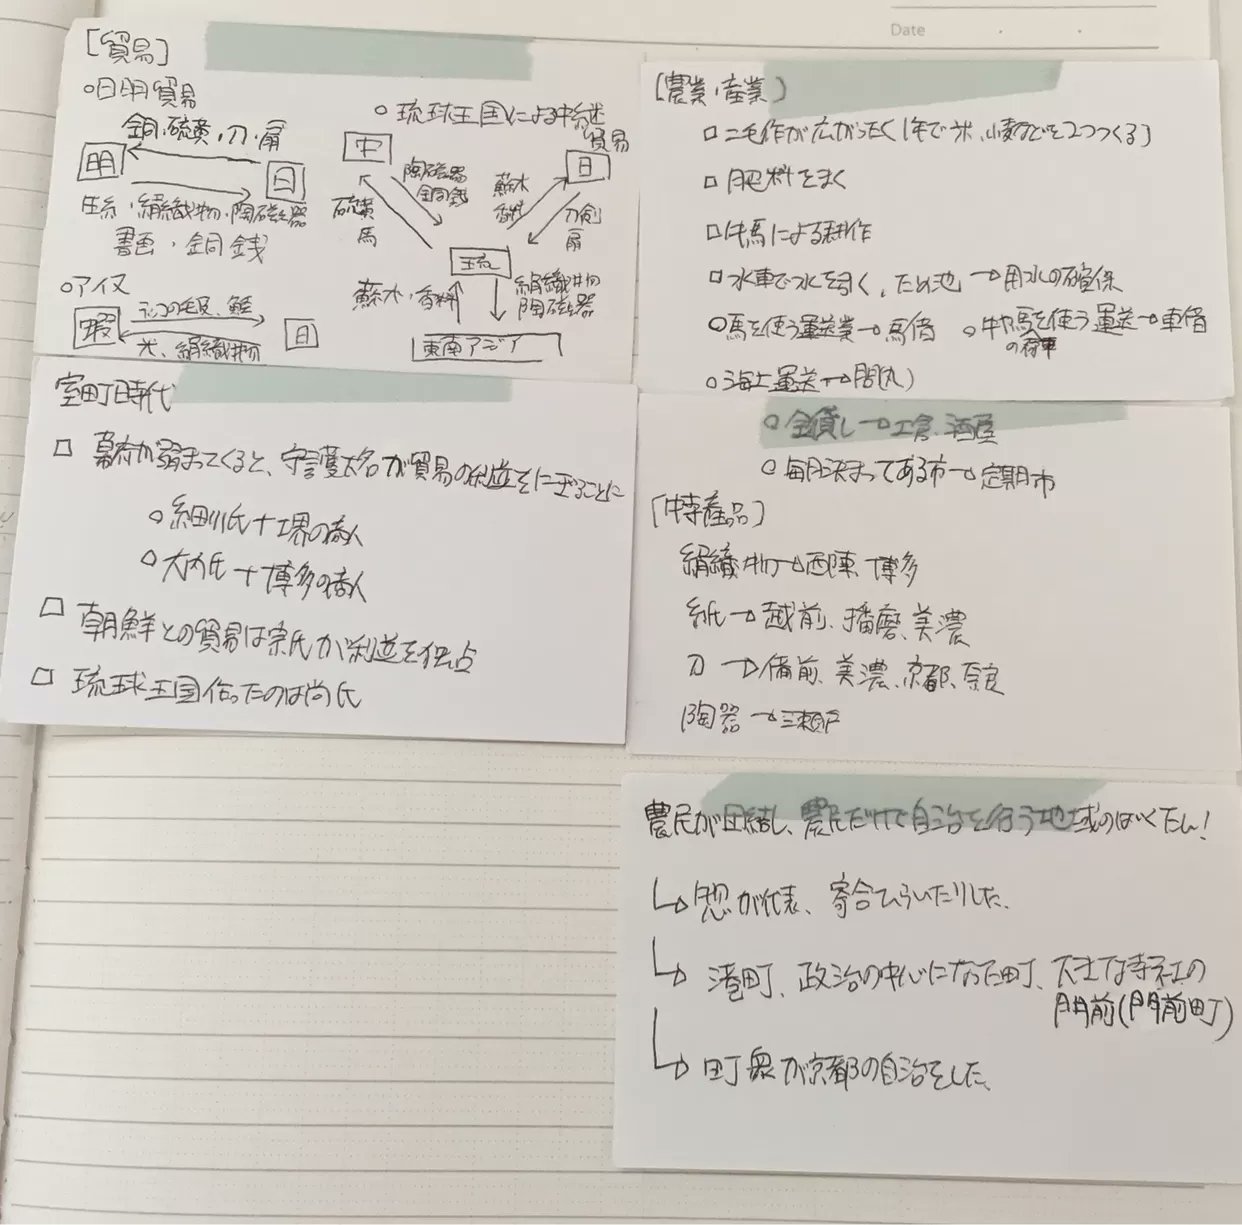 Date
[貿易]
○日明貿易
銅・硫黄・刀・扇
明
日
生糸・絹織物・陶磁器
書画・銅銭
○アイヌ
ラッコの毛皮、鮭
蝦
日
米、絹織物
○琉球王国による中継
貿易
中
日
陶磁器
銅銭
蘇木
香料
硫黄
馬
刀剣
扇
琉
蘇木・香料
絹織物
陶磁器
東南アジア
室町時代
□ 幕府が弱まってくると、守護大名が貿易の利益をにぎることに
○細川氏+堺の商人
○大内氏+博多の商人
□ 朝鮮との貿易は宗氏が利益を独占
□ 琉球王国作ったのは尚氏
[農業・産業]
□二毛作が広がった(1年で米、小麦などを2つつくる)
□肥料をまく
□牛馬による耕作
□水車で水を引く、ため池→用水の確保
○馬を使う運送業→馬借
○牛馬を使う運送→車借
の荷車
○海上運送→問丸
○金貸し→土倉、酒屋
○毎月決まってある市→定期市
[特産品]
絹織物→西陣、博多
紙→越前、播磨、美濃
刀→備前、美濃、京都、奈良
陶器→瀬戸
農民が団結し、農民だけで自治を行う地域のばくたん!
↳惣が代表、寄合ひらいたりした。
↳港町、政治の中心になった町、大きな寺社の
門前(門前町)
↳町衆が京都の自治をした。